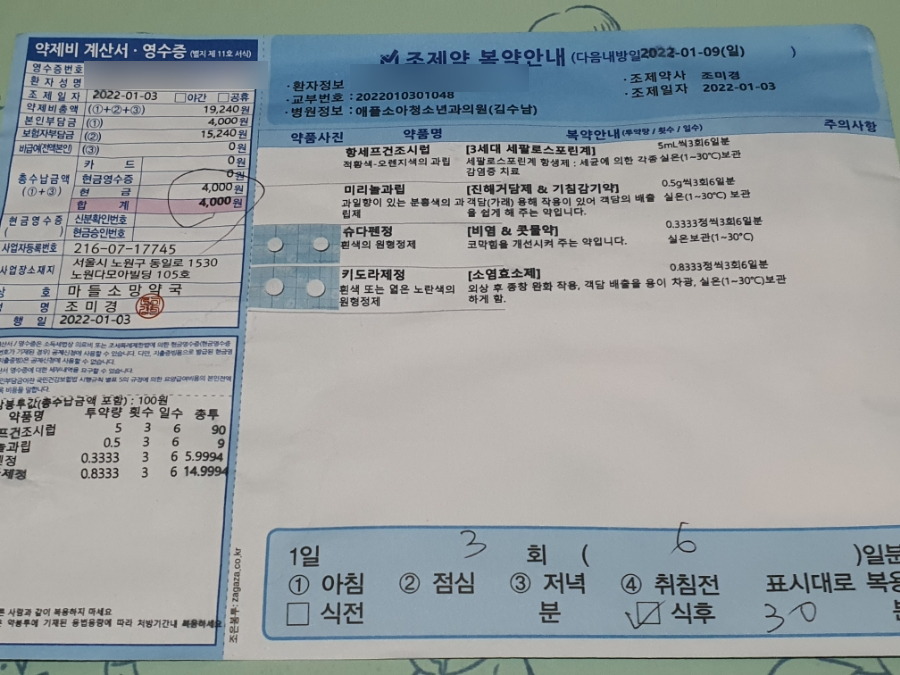 약제비 계산서·영수증 (별지 제 11호 서식)
영수증번호
환자성명
조제일자 2022-01-03 □야간 □공휴
약제비총액 (①+②+③) 19,240원
본인부담금 (①) 4,000원
보험자부담금 (②) 15,240원
비급여(전액본인) (③) 0원
총수납금액 (①+③)
카드 0원
현금영수증 0원
현금 4,000원
합계 4,000원
현금영수증
신분확인번호
현금승인번호
사업자등록번호 216-07-17745
사업장소재지 서울시 노원구 동일로 1530
노원다모아빌딩 105호
상 호 마들소망약국
성 명 조미경
행 일 2022-01-03
봉투값(총수납금액 포함) : 100원
약품명 투약량 횟수 일수 총투
프건조시럽 5 3 6 90
늘과립 0.5 3 6 9
펜정 0.3333 3 6 5.9994
제정 0.8333 3 6 14.9994
른 사람과 같이 복용하지 마세요
약봉투에 기재된 용법용량에 따라 처방기간내 복용하세요
조은봉투: zagaza.co.kr
조제약 복약안내 (다음내방일 2022-01-09(일) )
·환자정보
·교부번호 : 2022010301048
·병원정보 : 애플소아청소년과의원(김수남)
·조제약사 조미경
·조제일자 2022-01-03
약품사진 약품명 복약안내(투약량 / 횟수 / 일수) 주의사항
항세프건조시럽 [3세대 세팔로스포린계] 5mL씩3회6일분
적황색-오렌지색의 과립 세팔로스포린계 항생제 : 세균에 의한 각종 감염증 치료 실온(1~30℃)보관
미리놀과립 [진해거담제 & 기침감기약] 0.5g씩3회6일분
과일향이 있는 분홍색의 과립제 객담(가래) 용해 작용이 있어 객담의 배출을 쉽게 해 주는 약입니다. 실온(1~30℃)보관
슈다펜정 [비염 & 콧물약] 0.3333정씩3회6일분
흰색의 원형정제 코막힘을 개선시켜 주는 약입니다. 실온보관(1~30℃)
키도라제정 [소염효소제] 0.8333정씩3회6일분
흰색 또는 엷은 노란색의 원형정제 외상 후 종창 완화 작용, 객담 배출을 용이하게 함. 차광, 실온(1~30℃)보관
1일 3 회 ( 6 )일분
① 아침 ② 점심 ③ 저녁 ④ 취침전 표시대로 복용
□ 식전 분 ☑ 식후 30 분